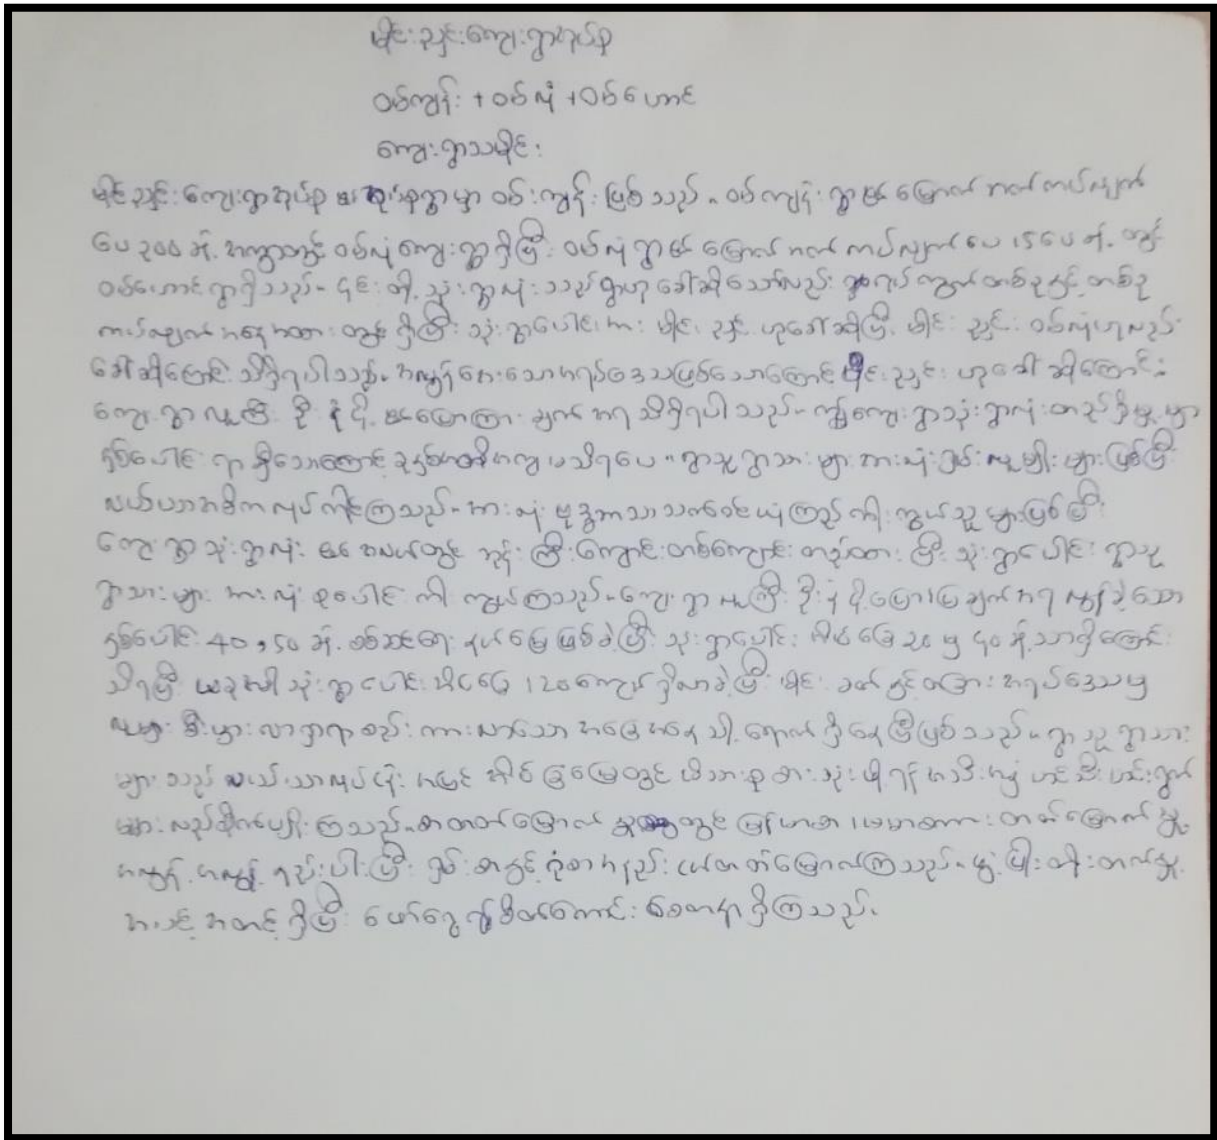 မိုင်းညှင်းကျေးရွာအုပ်စု
ဝမ်ကျွန်း + ဝမ်လုံ + ဝမ်ဟောင်
ကျေးရွာသမိုင်း
မိုင်းညှင်းကျေးရွာအုပ်စု ၏ ရွာမှာ ဝမ်းကျွန်း ဖြစ်သည်။ ဝမ်ကျွန်းရွာ၏ မြောက်ဘက်ကပ်လျက်
ပေ ၃၀၀ ခန့် အကွာတွင် ဝမ်လုံကျေးရွာရှိပြီး ဝမ်လုံရွာ၏ မြောက်ဘက်ကပ်လျက် ပေ ၁၅ ပေ ခန့် တွင်
ဝမ်ဟောင်ရွာရှိသည်။ ၎င်းတို့ သုံးရွာလုံးသည် ရွာဟုခေါ်ဆိုသော်လည်း ရပ်ကွက်တစ်ခုနှင့်တစ်ခု
ကပ်လျက်အနေအထားတွင်ရှိပြီး သုံးရွာပေါင်းအား မိုင်းညှင်းဟုခေါ်ဆိုပြီး မိုင်းညှင်း ဝမ်လုံဟုလည်း
ခေါ်ဆိုကြောင်း သိရှိရပါသည်။ အလွန်အေးသောအရပ်ဒေသဖြစ်သောကြောင့် မိုင်းညှင်းဟုခေါ်ဆိုကြောင်း
ကျေးရွာလူကြီး ဦး ၏ပြောကြားချက်အရ သိရှိရပါသည်။ ကျေးရွာသုံးရွာလုံးတည်ရှိမှုမှာ
နှစ်ပေါင်းရာရှိသောကြောင့် ခုနှစ်အတိအကျမသိရပေ။ ရွာသူရွာသားများအားလုံးရှမ်းလူမျိုးများဖြစ်ပြီး
လယ်ယာအဓိကလုပ်ကိုင်ကြသည်။ အားလုံးဗုဒ္ဓဘာသာသက်ဝင်ယုံကြည်ကိုးကွယ်သူများဖြစ်ပြီး
ကျေးရွာသုံးရွာလုံး၏ အလယ်တွင် ဘုန်းကြီးကျောင်းတစ်ကျောင်းတည်ထားပြီး သုံးရွာပေါင်း ရွာသူ
ရွာသားများအားလုံးစုပေါင်းကိုးကွယ်ကြသည်။ ကျေးရွာလူကြီး ဦး ပြောပြချက်အရ လွန်ခဲ့သော
နှစ်ပေါင်း 40, 50 ခန့် စစ်ဆင်ရေးနယ်မြေဖြစ်ခဲ့ပြီး သုံးရွာပေါင်း အိမ်ခြေ ၃၀ မှ ၄၀ ခန့်သာရှိကြောင်း
သိရပြီး ယခုအခါ သုံးရွာပေါင်း အိမ်ခြေ ၁၂၀ ကျော်ရှိလာခဲ့ပြီး မိုင်း နှင့်တခြားအရပ်ဒေသမှ
စည်ကားလာသောအခြေအနေသို့ရောက်ရှိနေပြီဖြစ်သည်။ ရွာသူရွာသား
များသည် လယ်ယာလုပ်ငန်းအပြင် အိမ်ခြံမြေတွင် မိသားစုစားသုံးဖို့ရန် ဟင်းသီးဟင်းရွက်
များလည်းစိုက်ပျိုးကြသည်။ စာတတ်မြောက်မှုတွင် မြန်မာစာ၊ တတ်မြောက်မှု
အလွန်အလွန်နည်းပါးပြီး ရှမ်းစာနှင့် တတ်မြောက်ကြသည်။ ဖွံ့ဖြိုးတိုးတက်မှု
အသင့်အတင့်ရှိပြီး ဖော်ရွေ၍စိတ်ကောင်းစေတနာရှိကြသည်။